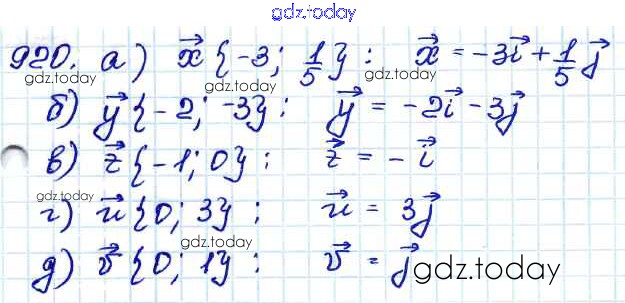 gdz.today
920. а) x⃗ {-3; 1/5} : x⃗ = -3i⃗ + 1/5 j⃗
gdz.today gdz.today
б) y⃗ {-2; -3} : y⃗ = -2i⃗ - 3j⃗
в) z⃗ {-1; 0} : z⃗ = - i⃗
gdz.today
г) u⃗ {0; 3} ; u⃗ = 3j⃗
gdz.today
д) v⃗ {0; 1} : v⃗ = j⃗
gdz.today